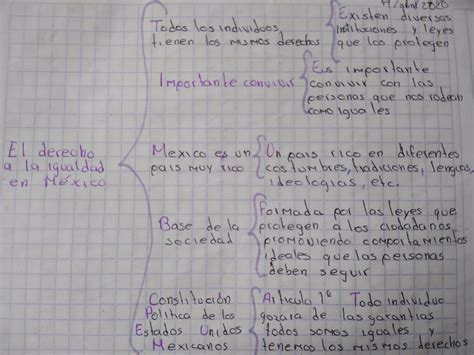 Abril 2020
El derecho
a la igualdad
en México
Todos los individuos
tienen los mismos derechos
Existen diversas
instituciones y leyes
que los protegen
Importante convivir
Es importante
convivir con las
personas que nos rodean
como iguales
Mexico es un
pais muy rico
Un pais rico en diferentes
costumbres, tradiciones, lenguas,
ideologias, etc.
Base de la
sociedad
Formada por las leyes que
protegen a los ciudadanos
promoviendo comportamientos
ideales que las personas
deben seguir
Constitución
Politica de los
Estados Unidos
Mexicanos
Articulo 1° Todo individuo
gozara de las garantias
todos somos iguales y
tenemos los mismos derechos